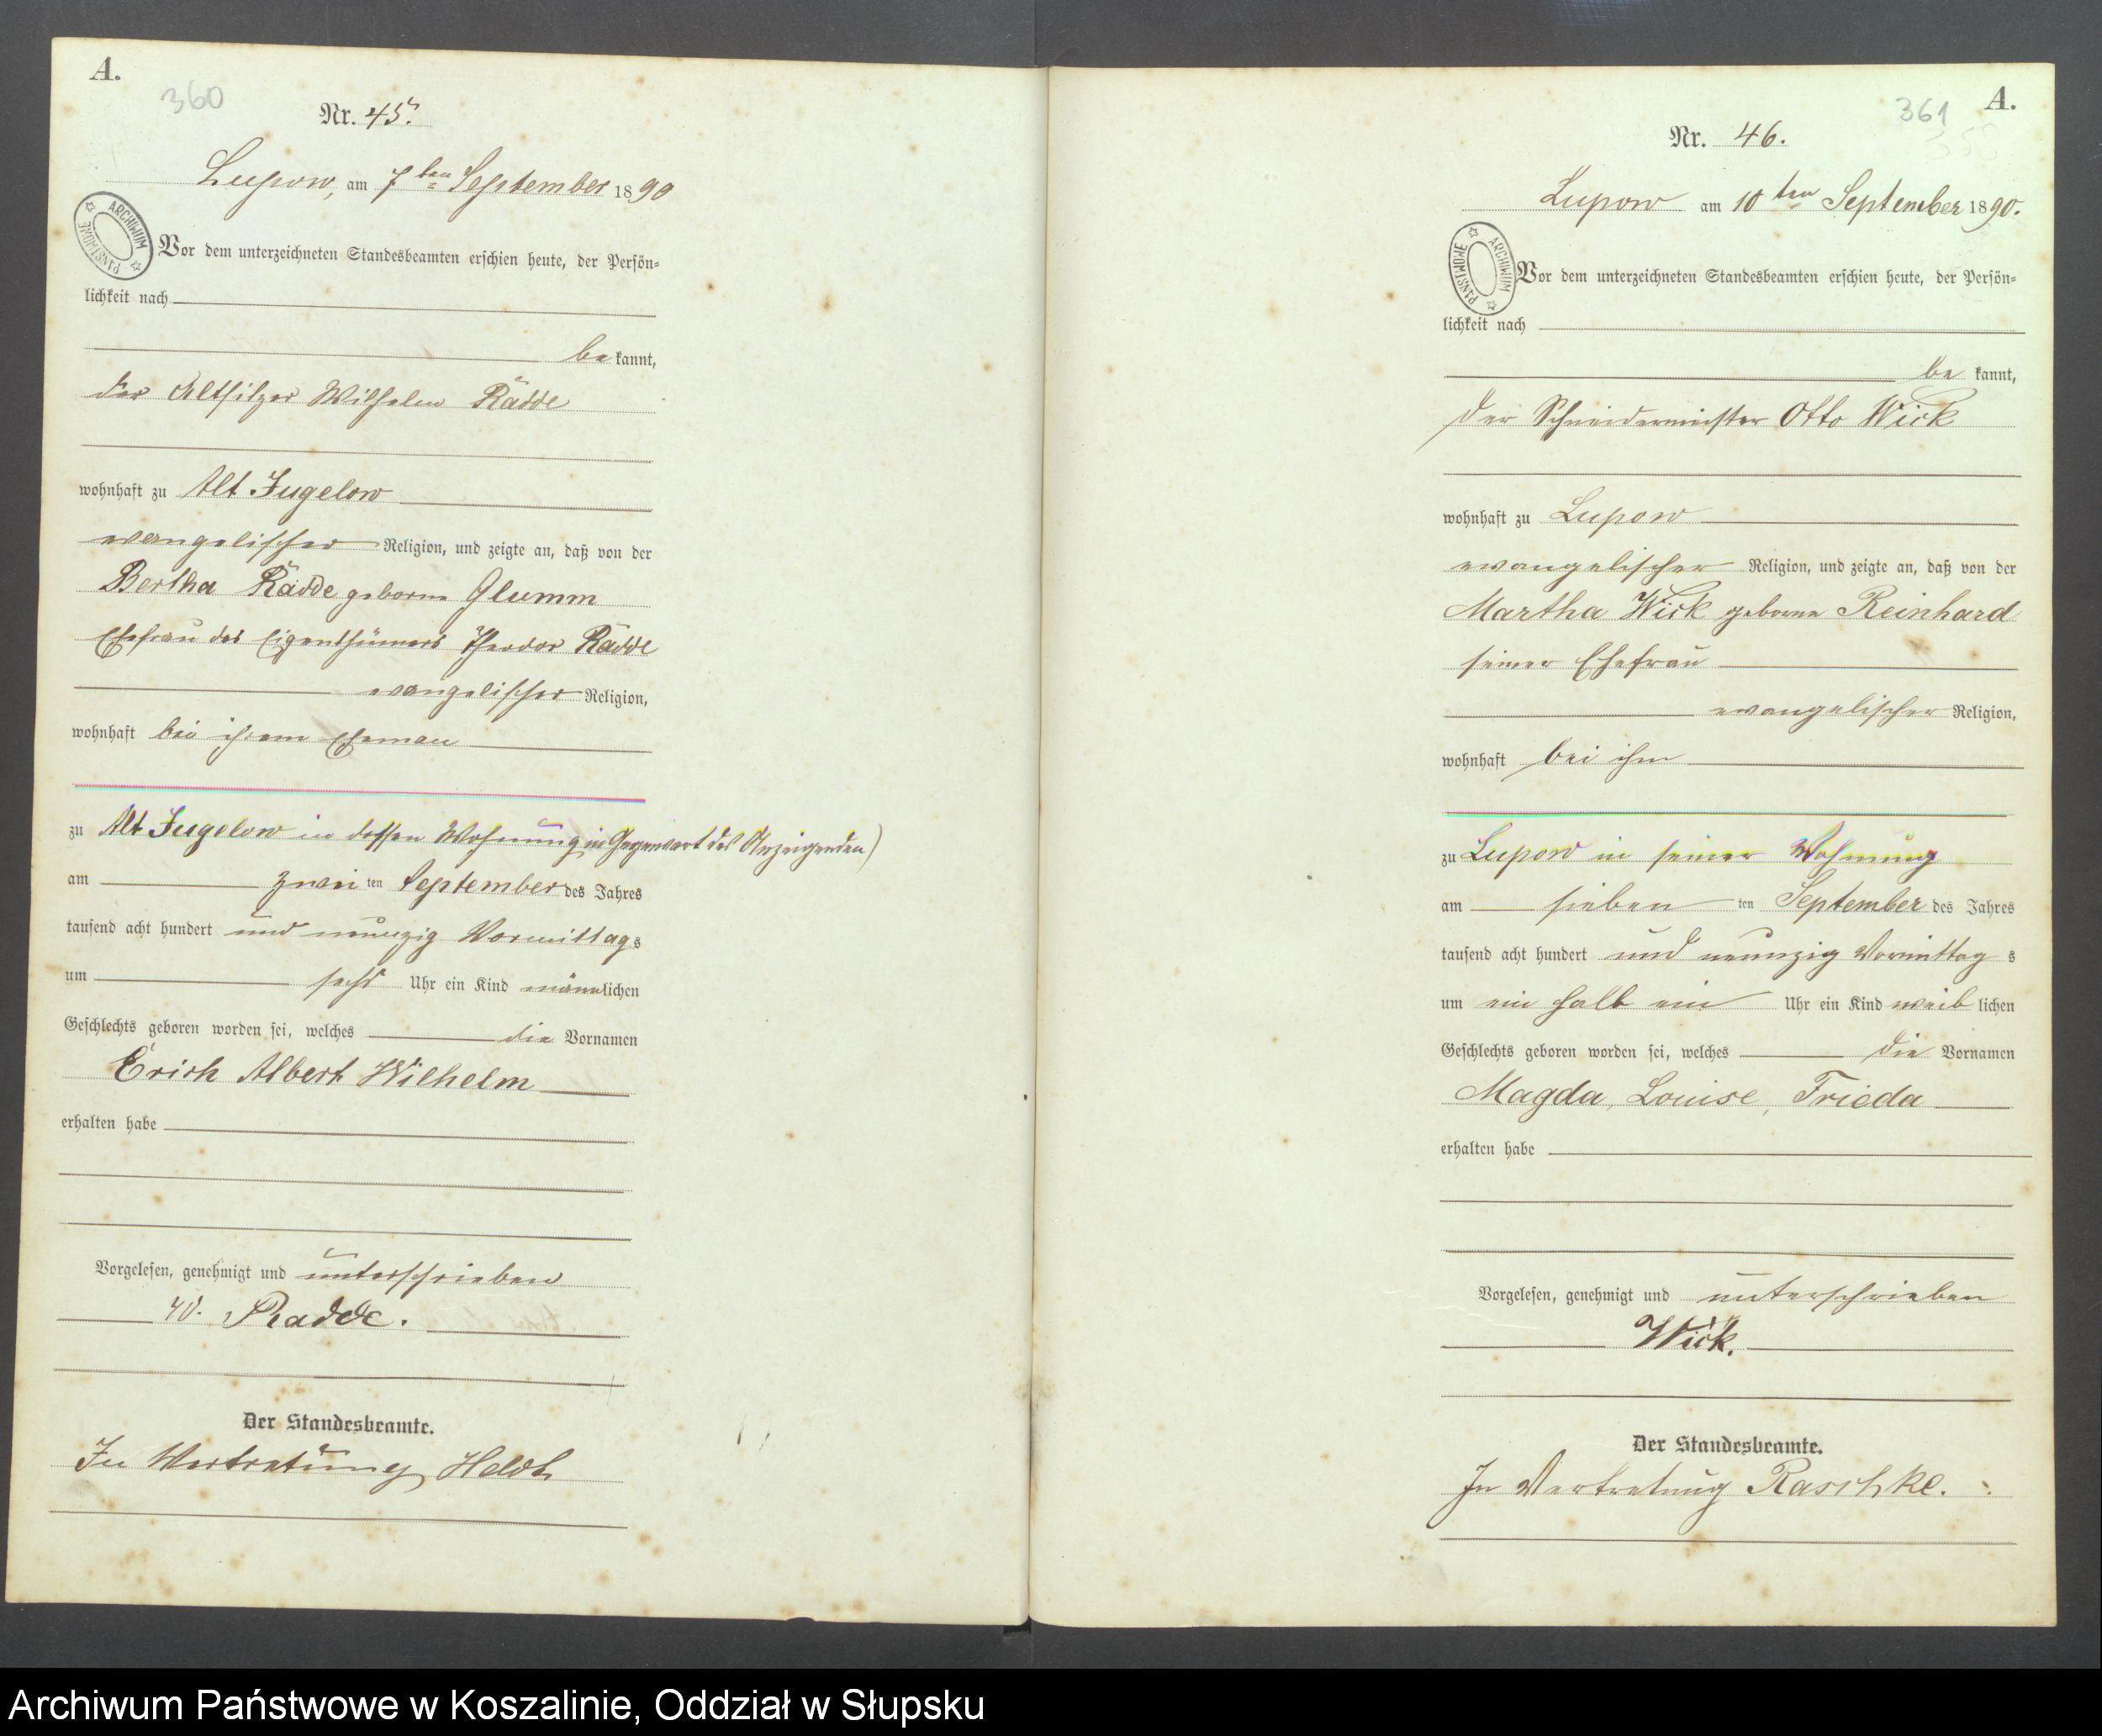 A.
360
Nr. 45.
Lupow, am 7ten September 1890
ARCHIWUM PAŃSTWOWE
Vor dem unterzeichneten Standesbeamten erschien heute, der Persön=
lichkeit nach
be kannt,
der Altsitzer Wilhelm Rädde
wohnhaft zu Alt Jugelow
evangelischer Religion, und zeigte an, daß von der
Bertha Rädde geborne Glumm
Ehefrau des Eigenthümers Theodor Rädde
evangelischer Religion,
wohnhaft bei ihrem Eheman
zu Alt Jugelow in dessen Wohnung in Gegenwart des Anzeigenden)
am zwei ten September des Jahres
tausend acht hundert und neunzig Vormittags
um sechs Uhr ein Kind männlichen
Geschlechts geboren worden sei, welches die Vornamen
Erich Albert Wilhelm
erhalten habe
Vorgelesen, genehmigt und unterschrieben
W. Radde.
Der Standesbeamte.
In Vertretung Heldt
A.
361
Nr. 46.
Lupow am 10ten September 1890.
ARCHIWUM PAŃSTWOWE
Vor dem unterzeichneten Standesbeamten erschien heute, der Persön=
lichkeit nach
be kannt,
der Schneidermeister Otto Wick
wohnhaft zu Lupow
evangelischer Religion, und zeigte an, daß von der
Martha Wick geborne Reinhard
seiner Ehefrau
evangelischer Religion,
wohnhaft bei ihm
zu Lupow in seiner Wohnung
am sieben ten September des Jahres
tausend acht hundert und neunzig Vormittag s
um ein halb ein Uhr ein Kind weib lichen
Geschlechts geboren worden sei, welches die Vornamen
Magda, Louise, Frieda
erhalten habe
Vorgelesen, genehmigt und unterschrieben
Wick.
Der Standesbeamte.
In Vertretung Raschke.
Archiwum Państwowe w Koszalinie, Oddział w Słupsku